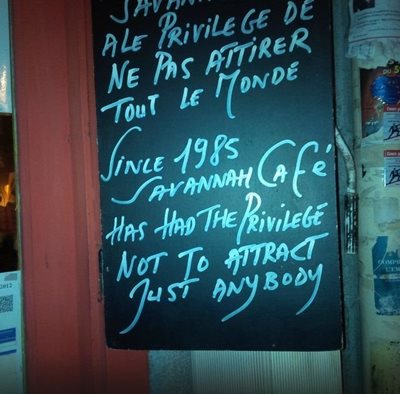 SAVANNAH
A LE PRIVILEGE DE
NE PAS ATTIRER
TOUT LE MONDE
SINCE 1985
SAVANNAH CAFÉ
HAS HAD THE PRIVILEGE
NOT TO ATTRACT
JUST ANYBODY